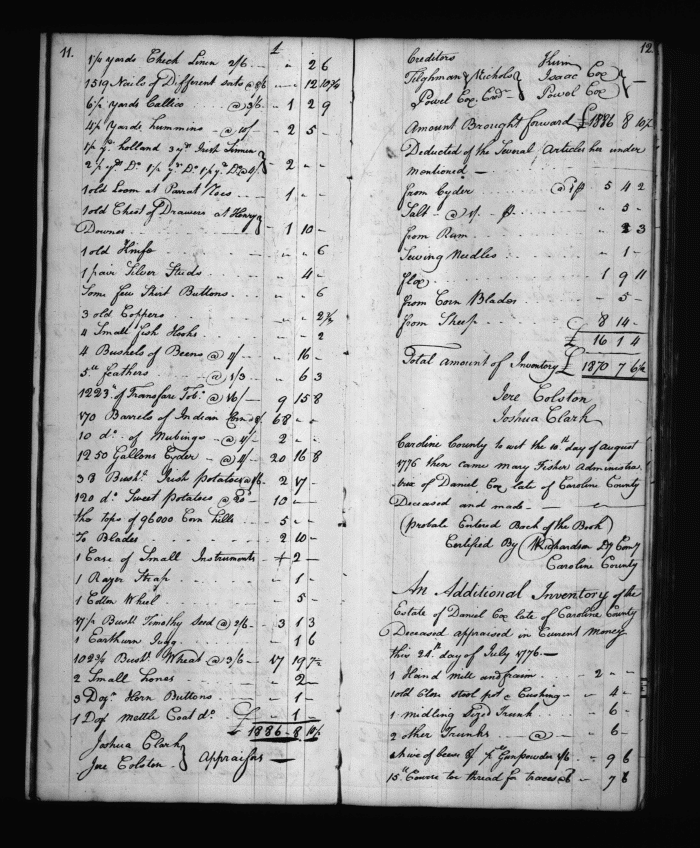 11.
1½ yards Check Linen 2/6 - - " 2 6
1519 Nails of Different sorts @8/6 - - - 12 10¾
6½ yards Callico - - @3/6 - 1 2 9
4½ yards hummins - @10/ - 2 5 -
1½ yds holland 3 yds Irish Linnen
2½ yds Do 1½ yds Do 1½ yds Do @4/ } 2 " "
1 old Loom at Parrat Roes - - - 1 " -
1 old Chest of Drawers at Henry
Downes } 1 10 -
1 old Knife - - - " " 6
1 pair Silver Studs - - - " 4 -
Some few Shirt Buttons - - - " " 6
3 old Coppers - - - " " 2½
4 Small fish Hooks - - - " " 2
4 Bushels of Beens @ 4/ - - " 16 -
5lb feathers - - @ 1/3 - - " 6 3
1223lb of Transfare Tobo @ 16/ - 9 15 8
170 Barrels of Indian Corn @ 8/. 68 - -
10 do of Nubings - @ 4/ - 2 " -
1250 Gallons Cyder - @ 4/ - 20 16 8
38 Bushls Irish potatoes @ 1/6 - 2 17 -
120 do Sweet Potatoes @ 20d - 10 - -
the tops of 96000 Corn hills - 5 " -
To Blades - - - 2 10 -
1 Case of Small Instruments - + 2 -
1 Razor Strap - - - " 1 -
1 Cotton Wheel - - - 5 -
17½ Bushl Timothy Seed @ 3/6 - 3 1 3
1 Earthern Jugg - - - " 1 6
102¾ Bushls Wheat @ 3/6 - 17 19 7½
2 Small hones - - - " 2 -
3 Dozn Horn Buttons - - - " 1 -
1 Dozn Mettle Coat do - £ - 1 -
1886 - 8 10½
Joshua Clark
Jere Colston } Appraisors
12
Creditors Kinn
Tilghman & Nichols } Isaac Cox } -
Powel Cox Exr Powel Cox
Amount Brought forward £1886 8 10½
Deducted of the Several Articles here under
mentioned -
from Cyder @ 1/ 5 4 2
Salt - @ 1/. - " 5 -
from Rum - - - " 2 3
Sewing Needles - - " 1 -
flax - - - 1 9 11
from Corn Blades - - - " 5 -
from Sheep - - - 8 14 -
£ 16 1 4
Total amount of Inventory £ 1870 7 6½
Jere Colston
Joshua Clark
Caroline County to wit the 10th day of August
1776 then came Mary Fisher Administra
trix of Daniel Cox late of Caroline County
Deceased and made -
(probate Entered Back of the Book)
Certified By Richardson Dy Comy
Caroline County
An Additional Inventory of the
Estate of Daniel Cox late of Caroline County
Deceased appraised in Current Money
this 24th day of July 1776 -
1 Hand Mill and fraim - 2 " -
1 old Close stool pot & Cushing - " 4 -
1 midling Sized Trunk - - " 6 -
2 other Trunks - @ - " 6 -
a hive of bees 8/ ½lb Gunpowder 1/6 - " 9 6
15lb Course toe thread for traces @ 6 - " 7 6